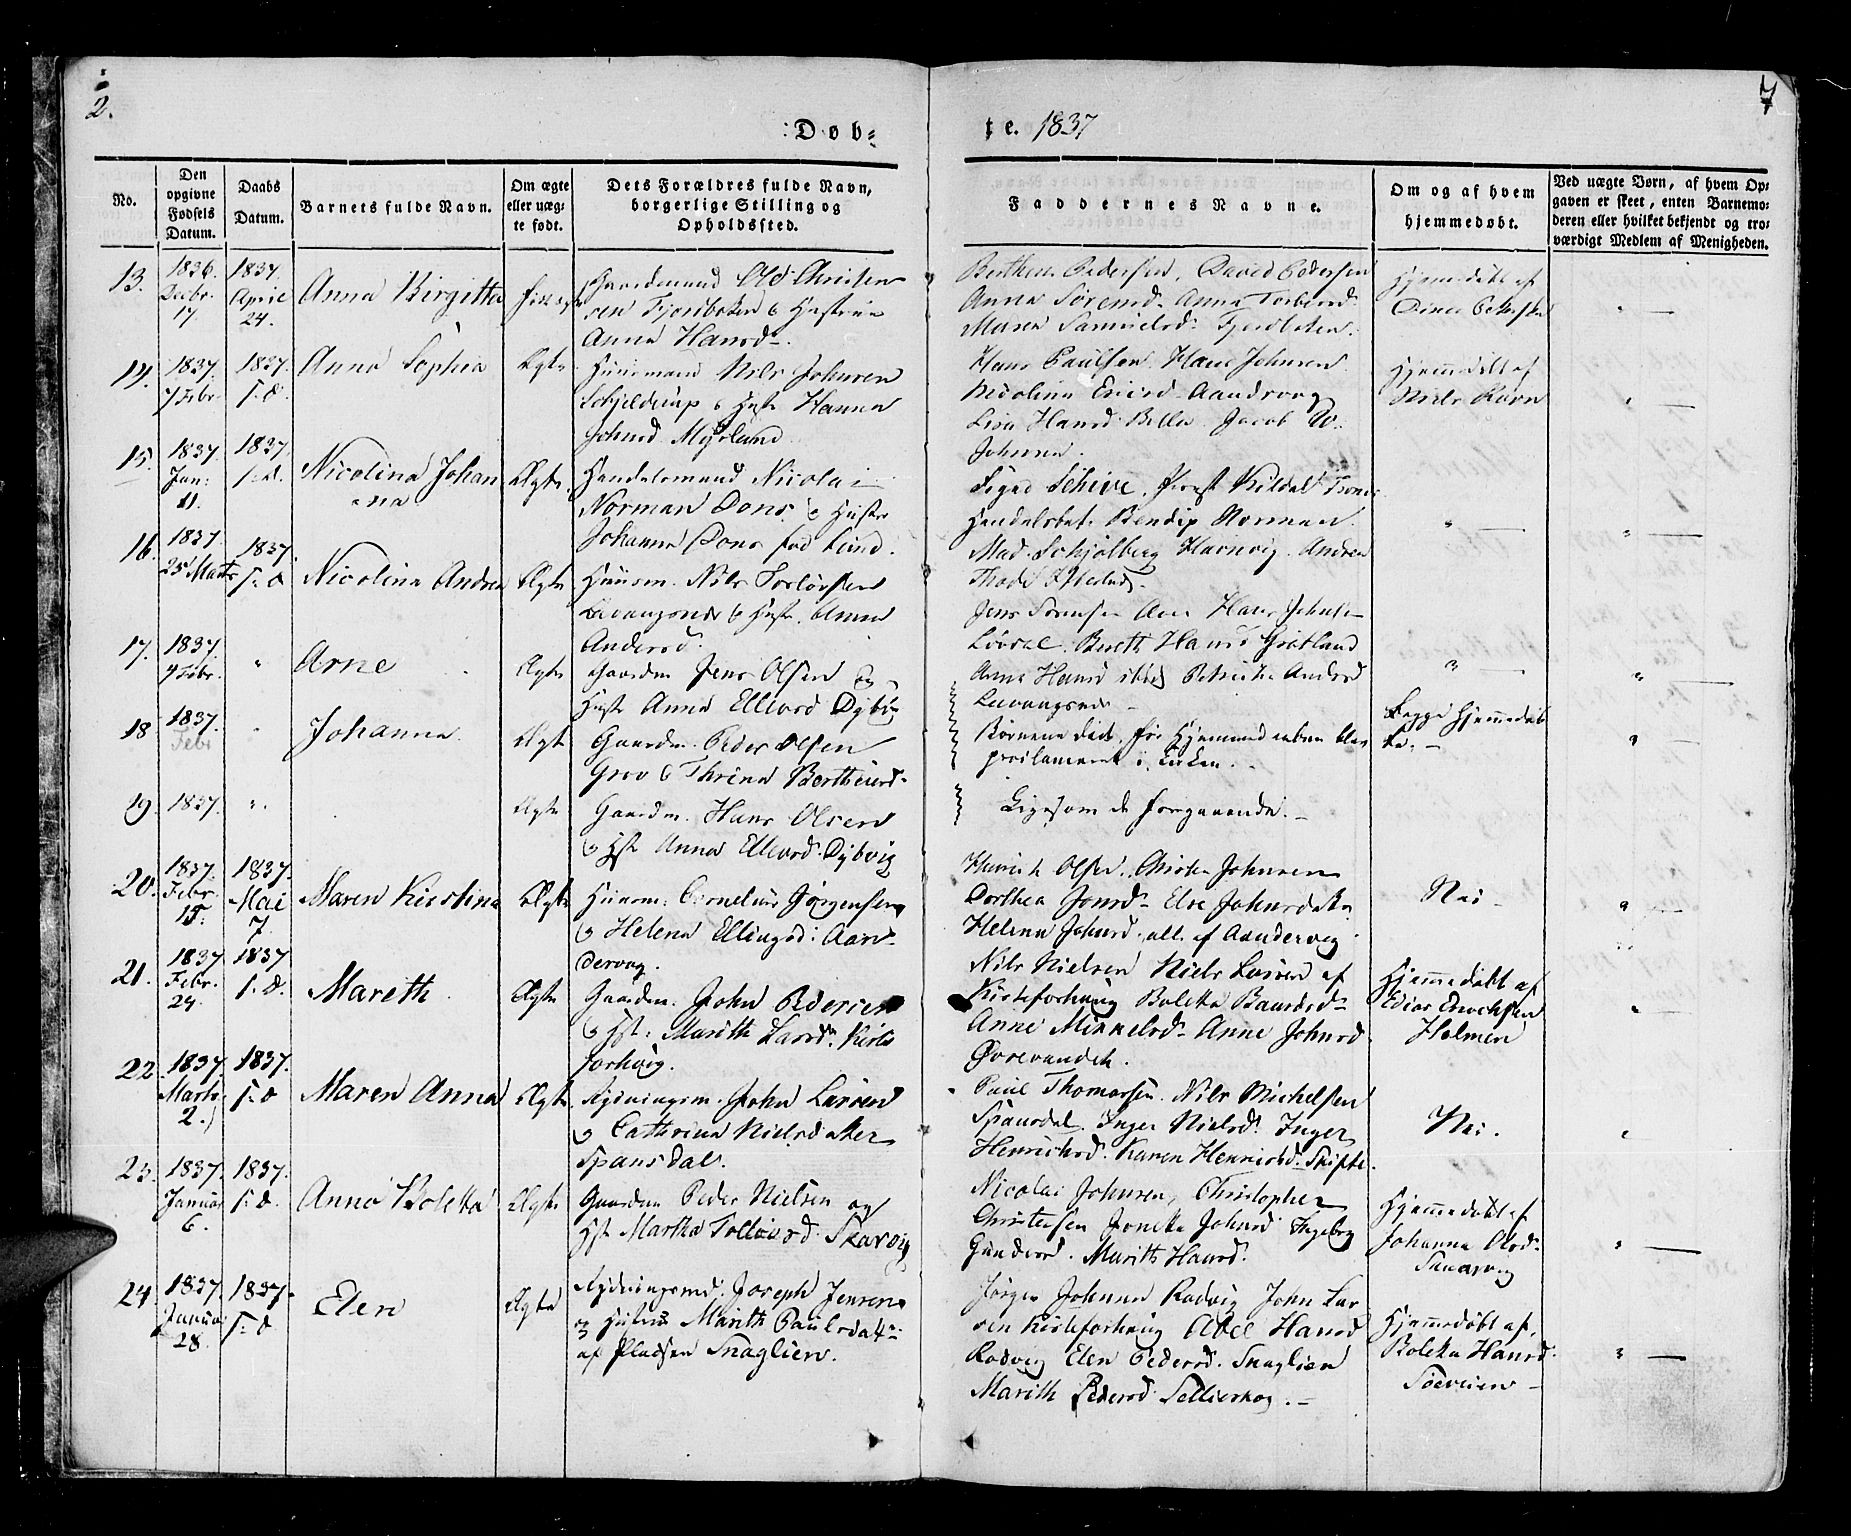 2.
7
Døb-
te. 1837
No.
Den opgivne Fødsels Datum.
Daabs Datum.
Barnets fulde Navn.
Om ægte eller uæg-te født.
Dets Forældres fulde Navn, borgerlige Stilling og Opholdssted.
Faddernes Navne.
Om og af hvem hjemmedøbt.
Ved uægte Børn, af hvem Op-
gaven er skeet, enten Barnemo-
deren eller hvilket bekjendt og tro-
værdigt Medlem af Menigheden.
13. 1836. Decbr. 17 1837. April 24. Anna Birgitta
Gaardmand Ole Christen
sen Fjordbotn & Hustrue
Anna Hansd.
Berthen Pedersen, David Pedersen
Anna Sørensd. Anna Torbersd.
Maren Samuelsd. Fjordboten.
Hjemmedøbt af
14. 1837. 7 Febr. 1837. S. D. Anna Sophia Ægte
Huusmand Nils Johnsen
Schjelderup & Hust. Hanna
Johnsd. Myrlund
Hans Paulsen. Hans Johnsen
Nicolina Ericsd. Aandervag
Lisa Hansd. Jacob
Johnsen.
Hjemmedøbt af
Niels Ravn
15. 1837. Jan: 11. 1837. S. D. Nicolina Johan
na Ægte
Handelsmand Nicolai
Norman Dons, & Hustr.
Johanna Dons fød Lund.
Schive, Kildal
Handelsbet. Bendix Norman.
Mad. Schjølberg Havnvig. Andrea
16. 1837. 25 Marts 1837. S. D. Nicolina Andrea Ægte
Huusm. Nils Torlevsen
Lavangsnes & Hust.
Andersd.
Jens Sørensen Hans Johnsen
Løvdal. Bereth Hansd. Gratland
Anna Hansd. Petrikka Andersd.
Lavangsnes
17. 1837. 4 Febr. " Arne Ægte
Gaardm. Jens Olsen &
Hust. Anna Ellevsd. Dybvig
18 1837. Febr " Johanna. Ægte
Gaardm. Peder Olsen
Grov & Thrina Bertheusd.
Børnene død, før Hjemmedaaben blev
proclameret i Kirken.
Begge Hjemmedøb
te.
19. 1837. " Ægte
Gaardm. Hans Olsen
& Hst. Anna Ellevsd. Dybvig
Ligesom de foregaaende.
20. 1837. Febr. 15. 1837. Mai 7. Maren Kirstina Ægte
Huusm. Cornelius Jørgensen
& Helena Ellingsd: Aan-
dervag.
Henrik Olsen. Christen Johnsen
Dorthea Jonsd. Else Johnsdatter
Helena Johnsd. all. af Aandervag
Nei
21. 1837 Febr. 24. 1837 S. D. Mareth Ægte
Gaardm. John Pedersen
& Hst: Marith Larsd. Kirke
forhøig.
Nils Nielsen Niels Larsen af
Kirkeforhøug Boletta Baardsd.
Anne Mikkelsd. Anne Johnsd.
Øvrevandet.
Hjemmedøbt af
Edias Enochsen
Holmen
22 1837. Marts 2. 1837. S. D Maren Anna Ægte
Rydningsm. John Larsen
& Cathrina Nielsdatter
Spansdal.
Paul Thomassen. Nils Michelsen
Spansdal. Inger Nielsd. Inger
Henrichsd. Karen Henricsd.
Nei.
23. 1837. Januar 6. 1837. S. D. Anna Boletta Ægte
Gaardm Peder Nielsen og
Hst Martha Tollevsd. Skarvig
Nicolai Johnsen, Christopher
Christensen Jonetta Johnsd. Ingeborg
Gundersd. Marith Hansd.
Hjemmedøbt af
Johanna Olsd.
24 1837. Januar 28. 1837. S. D Elen Ægte
Rydningsmd. Joseph Jensen
& Hustrue Marith Paulsdatt:
af Pladsen Snaglien.
Jørgen Johnsen Rødvig John Lar
sen Kirkeforhøug Abel Hansd
Rødvig Elen Pedersd. Snaglien
Marith Pedersd.
Hjemmedøbt af.
Boletta Hansd.
Søeveien